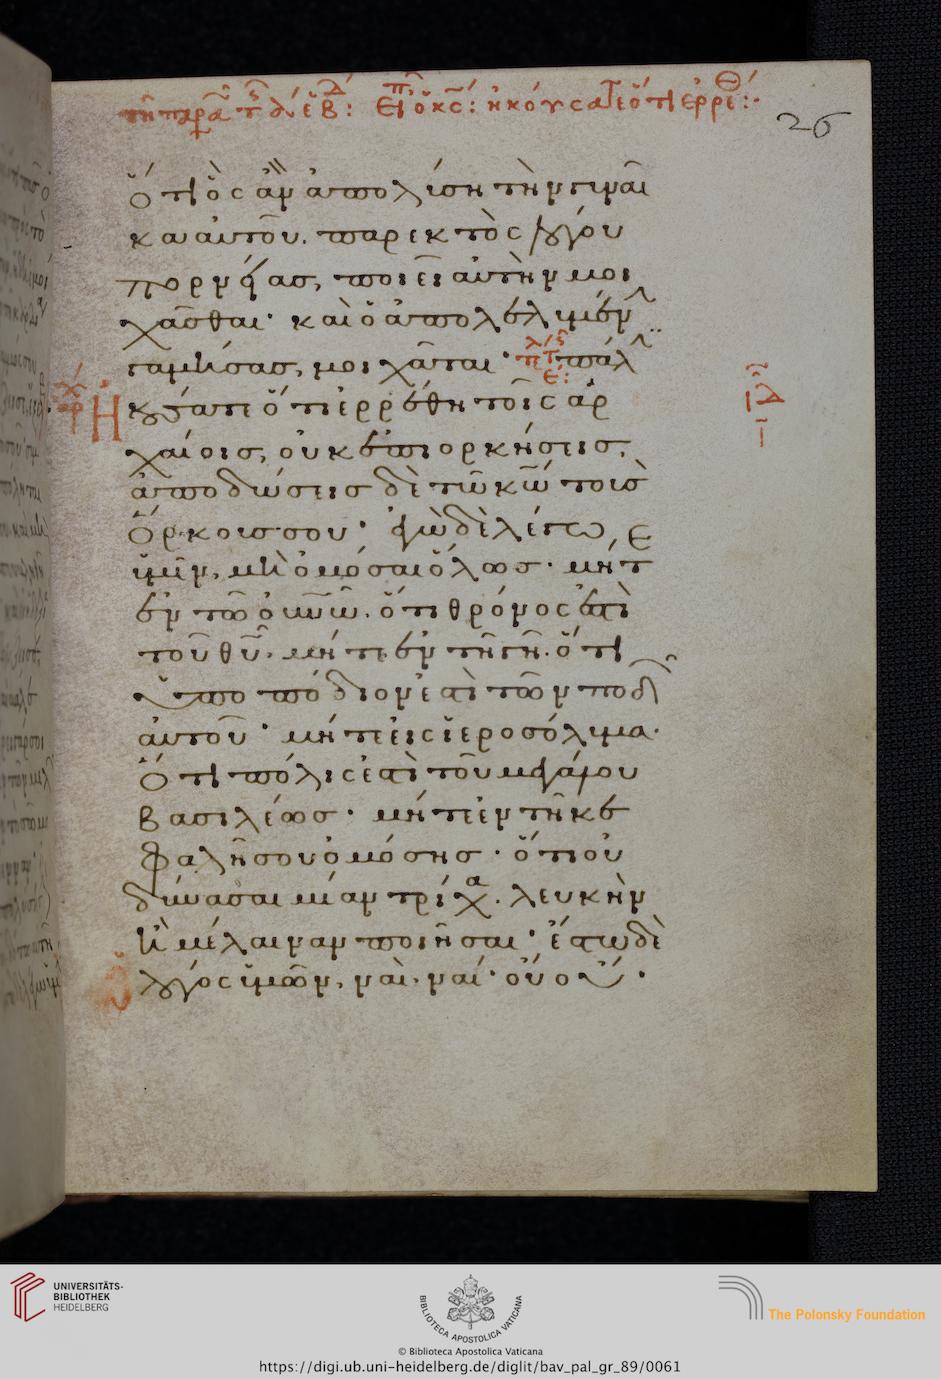 τῇ παρα τ ε β: Εἶπ ὁ κς: ἠκούσατε ὅτι ἐρρεθ:
26
ὅτι ὃς ἂν ἀπολύση τὴν γυναῖ
κα αὐτοῦ. παρεκτὸς λόγου
πορνείας, ποιεῖ αὐτὴν μοι
χᾶσθαι· καὶ ὁ ἀπολελυμέν
γαμήσας, μοιχᾶται· πάλ
ϊδ
Ηκούσατε ὅτι ἐρρέθη τοῖς ἀρ
χαίοις, οὐκ ἐπιορκήσεις,
ἀποδώσεις δὲ τῶ κῶ τοὺς
ὅρκους σου· ἐγὼ δὲ λέγω
ὑμῖν, μὴ ὀμόσαι ὅλως· μήτε
ἐν τῶ οὐνῶ. ὅτι θρόνος ἐστὶ
τοῦ θυ· μήτε ἐν τῆ γῆ. ὅτι
ὑποπόδιον ἐστὶ τῶν ποδ
αὐτοῦ· μήτε εἰς ἱεροσόλυμα·
ὅτι πόλις ἐστὶ τοῦ μεγάλου
βασιλέως· μήτε ἐν τῆ κε
φαλῆ σου ὀμόσης· ὅτι οὐ
δύνασαι μίαν τρίχα. λευκὴν
ἢ μέλαιναν ποιῆσαι· ἔστω δὲ
λόγος ὑμῶν, ναὶ, ναί· οὒ οὔ·
UNIVERSITÄTS-
BIBLIOTHEK
HEIDELBERG
BIBLIOTECA APOSTOLICA VATICANA
The Polonsky Foundation
© Biblioteca Apostolica Vaticana
https://digi.ub.uni-heidelberg.de/diglit/bav_pal_gr_89/0061